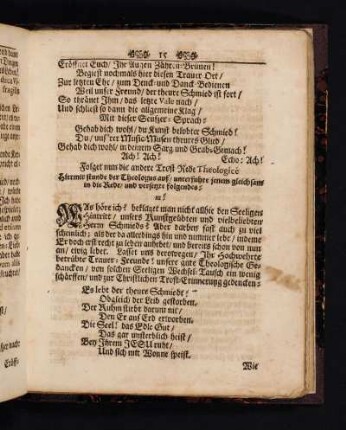 15
Eröffnet Euch/ Ihr Augen Zähren-Brünen!
Begießt nochmals hier diesen Trauer Ort/
Zur letzten Ehr/ zum Denck und Danck Bedienen
Weil unser Freund/ der theure Schmied ist fort/
So thränet Ihm/ das letzte Vale nach/
Und schliest so dann die allgemeine Klag/
Mit dieser Seufzer-Sprach:
Gehab dich wohl/ du Kunst belobter Schmied!
Du/ uns'rer Music Musen theures Glied/
Gehab dich wohl/ in deinem Sarg und Grabs-Gemach!
Ach! Ach! Echo: Ach!
Folget nun die andere Trost Rede Theologicè
Hiermit stunde der Theologus auf/ unterfuhre jenem gleichsam
in die Rede/ und versetzte folgendes:
WAs höre ich? beklaget man nicht allhie den Seeligen
Hintritt/ unsers Kunstgeübten und vielbeliebten
Herrn Schmieds? Aber darben soft auch zu viel
schmelich/ als ob er da allerdings hin und nimmer lebe/ indeme
Er doch erst recht zu leben anhebet/ und bereits schon von nun
an/ ewig lebet. Lasset uns derowegen/ Ihr Hochwerthe
betrübte Trauer-Freunde! unsere gute Theologische Ge-
dancken/ von solchen Seeligen Wechsel-Tausch ein wenig
schärffen/ und zur Christlichen Trost-Erinnerung gedencken:
Es lebt der theure Schmied:
Obgleich der Leib gestorben.
Der Ruhm stirbt darum nit/
Den Er auf Erd erworben.
Die Seel! das Edle Gut/
Das gar unsterblich heist/
Bey Ihrem JESU ruht/
Und sich mit Wonne speist.
Wie